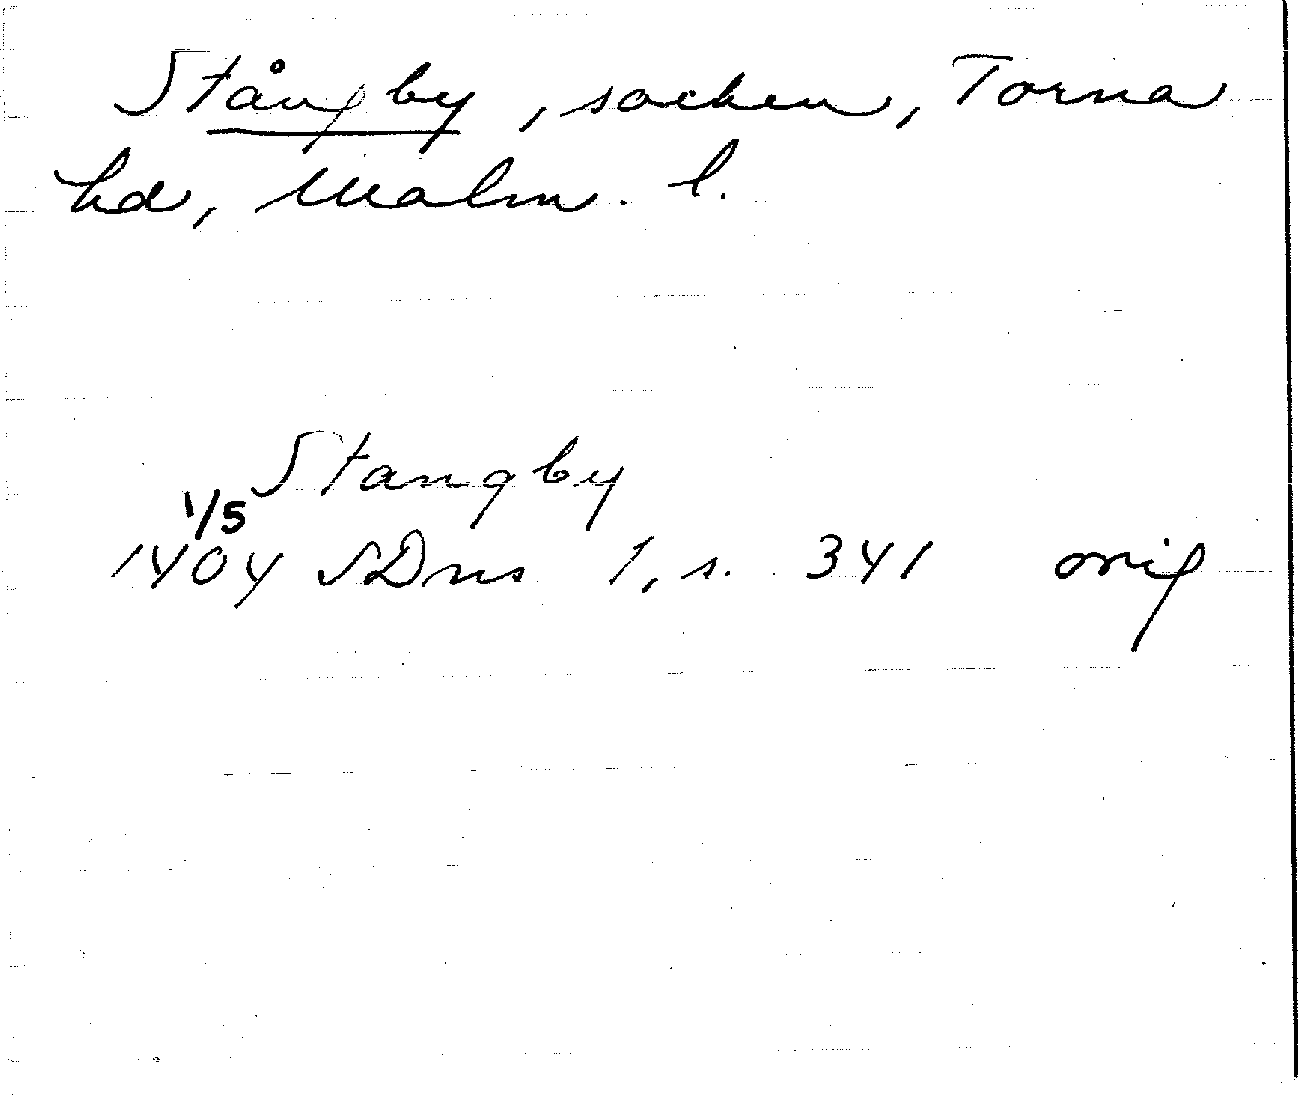 Stångby, socken, Torna
hd, Malm. l.
Stangby
1/5
1404 SDns 1, s. 341 orig